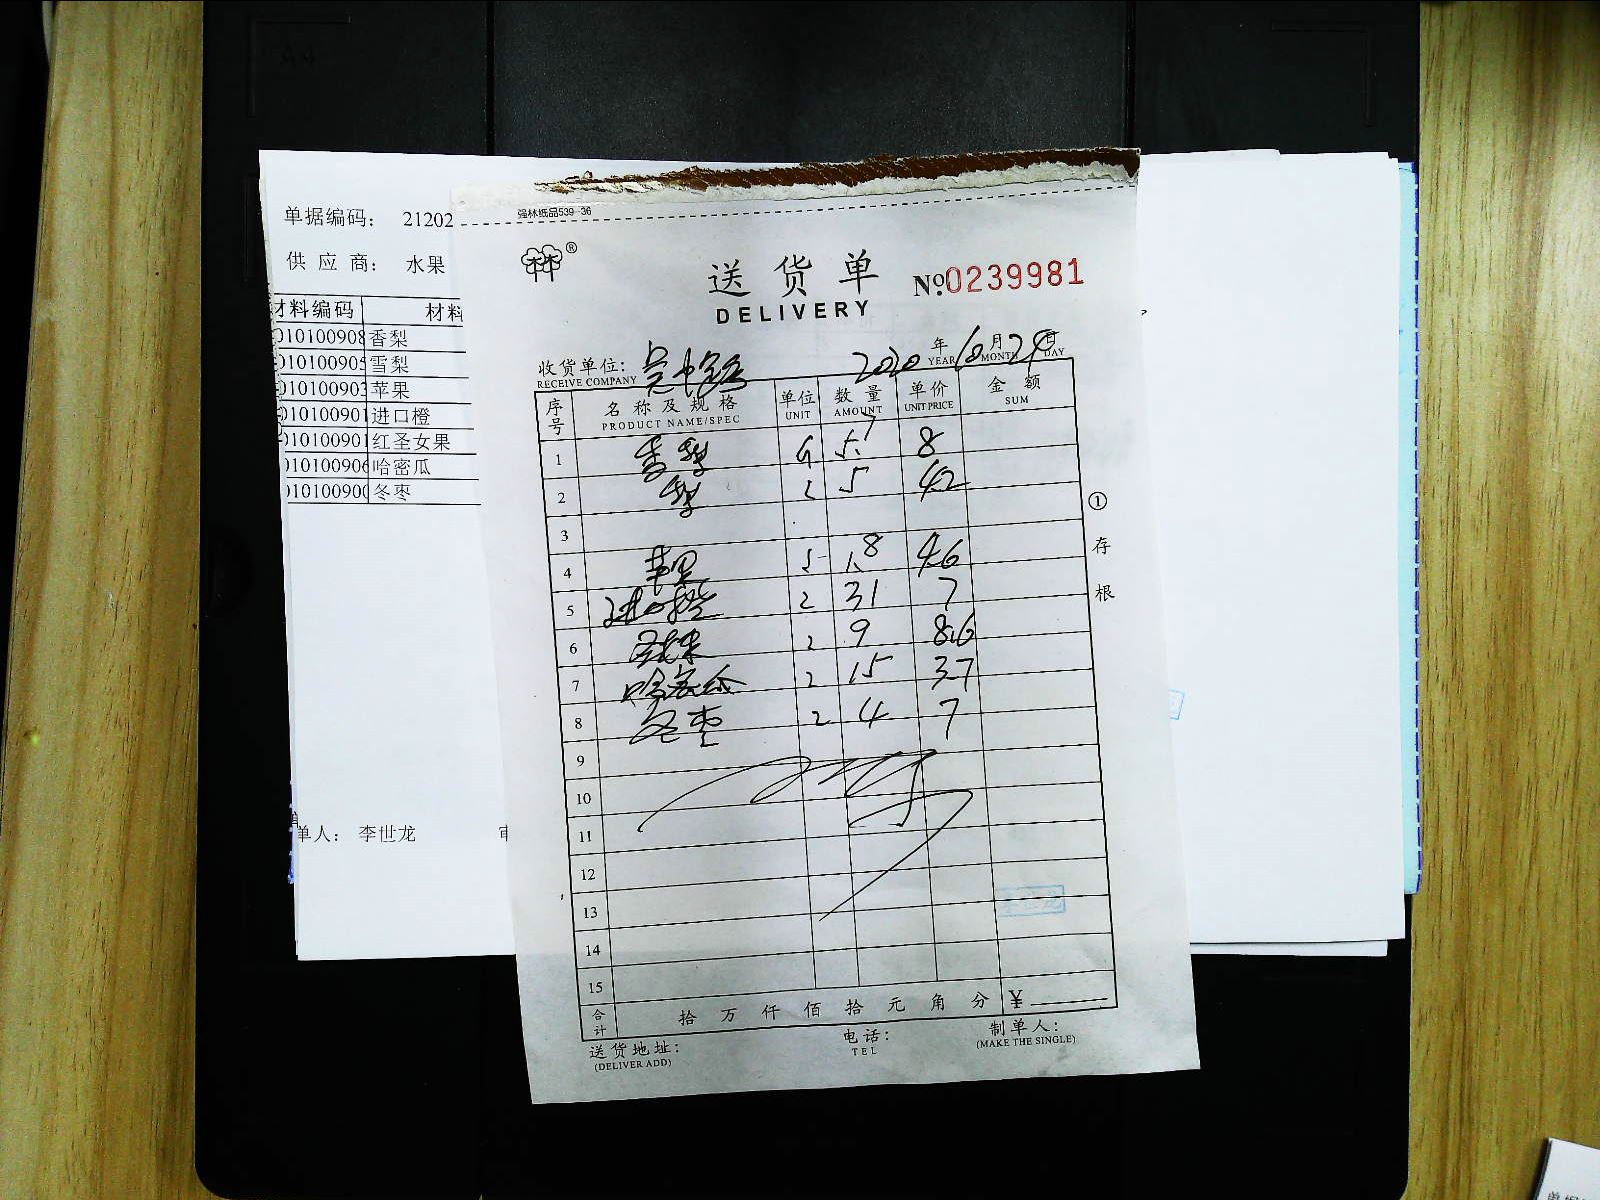 单据编码： 21202
供 应 商： 水果
材料编码 材料
010100908 香梨
010100905 雪梨
010100903 苹果
01010090 进口橙
01010090 红圣女果
010100906 哈密瓜
01010090 冬枣
单人： 李世龙
强林纸品539-36
林®
送 货 单 №0239981
DELIVERY
收货单位： 2020 年 10 月 24 日
RECEIVE COMPANY YEAR MONTH DAY
序号 名 称 及 规 格 单位 数 量 单价 金 额
PRODUCT NAME/SPEC UNIT AMOUNT UNIT PRICE SUM
1 香梨 5.7 8
2 梨 5 4.2
3
4 苹果 1.8 4.6
5 进口橙 31 7
6 9 8.6
7 哈密瓜 15 3.7
8 冬枣 4 7
9
10
11
12
13
14
15
合计 拾 万 仟 佰 拾 元 角 分 ¥
送货地址： 电话： 制单人：
(DELIVER ADD) TEL (MAKE THE SINGLE)
① 存 根
李世龙